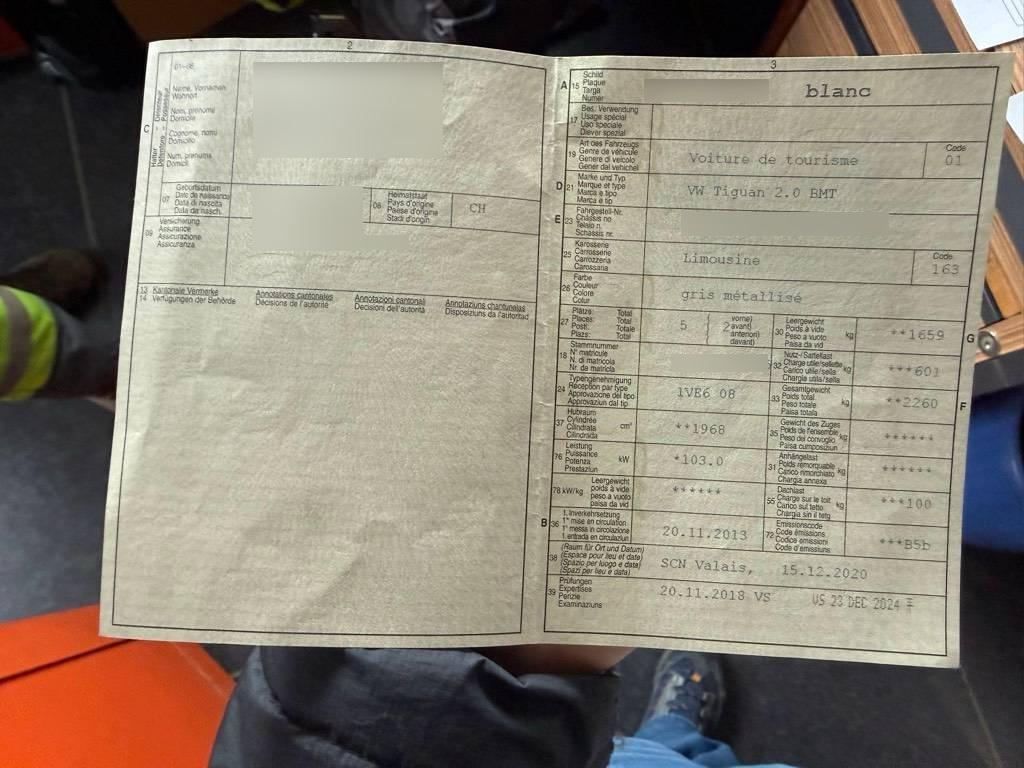 2
01-06
Name, Vornamen
Wohnort
Nom, prénoms
Domicile
C
Halter
Détenteur
Detentore
Possessur
Cognome, nomi
Domicilio
Num, prenums
Domicil
07
Geburtsdatum
Date de naissance
Data di nascita
Data da nasch.
08
Heimatstaat
Pays d'origine
Paese d'origine
Stadi d'origin
CH
09
Versicherung
Assurance
Assicurazione
Assicuranza
13 Kantonale Vermerke
14 Verfügungen der Behörde
Annotations cantonales
Décisions de l'autorité
Annotazioni cantonali
Decisioni dell'autorità
Annotaziuns chantunalas
Disposiziuns da l'autoritad
3
A 15
Schild
Plaque
Targa
Numer
blanc
17
Bes. Verwendung
Usage spécial
Uso speciale
Diever spezial
19
Art des Fahrzeugs
Genre de véhicule
Genere di veicolo
Gener dal vehichel
Voiture de tourisme
Code
01
D 21
Marke und Typ
Marque et type
Marca e tipo
Marca e tip
VW Tiguan 2.0 BMT
E 23
Fahrgestell-Nr.
Châssis no
Telaio n.
Schassis nr.
25
Karosserie
Carrosserie
Carrozzeria
Carossaria
Limousine
Code
163
26
Farbe
Couleur
Colore
Colur
gris métallisé
27
Plätze: Total
Places: Total
Posti: Totale
Plazs: Total
5
2
vorne)
avant)
anteriori)
davant)
30
Leergewicht
Poids à vide
Peso a vuoto
Paisa da vid
kg
**1659
G
18
Stammnummer
N° matricule
N. di matricola
Nr. da matricla
32
Nutz-/Sattellast
Charge utile/sellette
Carico utile/sella
Chargia utila/sella
kg
***601
24
Typengenehmigung
Réception par type
Approvazione del tipo
Approvaziun dal tip
1VE6 08
33
Gesamtgewicht
Poids total
Peso totale
Paisa totala
kg
**2260
F
37
Hubraum
Cylindrée
Cilindrata
Cilindrada
cm³
**1968
35
Gewicht des Zuges
Poids de l'ensemble
Peso del convoglio
Paisa cumposiziun
kg
******
76
Leistung
Puissance
Potenza
Prestaziun
kW
*103.0
31
Anhängelast
Poids remorquable
Carico rimorchiato
Chargia annexa
kg
******
78 kW/kg
Leergewicht
poids à vide
peso a vuoto
paisa da vid
******
55
Dachlast
Charge sur le toit
Carico sul tetto
Chargia sin il tetg
kg
***100
B 36
1. Inverkehrsetzung
1re mise en circulation
1a messa in circolazione
1. entrada en circulaziun
20.11.2013
72
Emissionscode
Code émissions
Codice emissioni
Code d'emissiuns
***B5b
38
(Raum für Ort und Datum)
(Espace pour lieu et date)
(Spazio per luogo e data)
(Spazi per lieu e data)
SCN Valais, 15.12.2020
39
Prüfungen
Expertises
Perizie
Examinaziuns
20.11.2018 VS
VS 23 DEC 2024